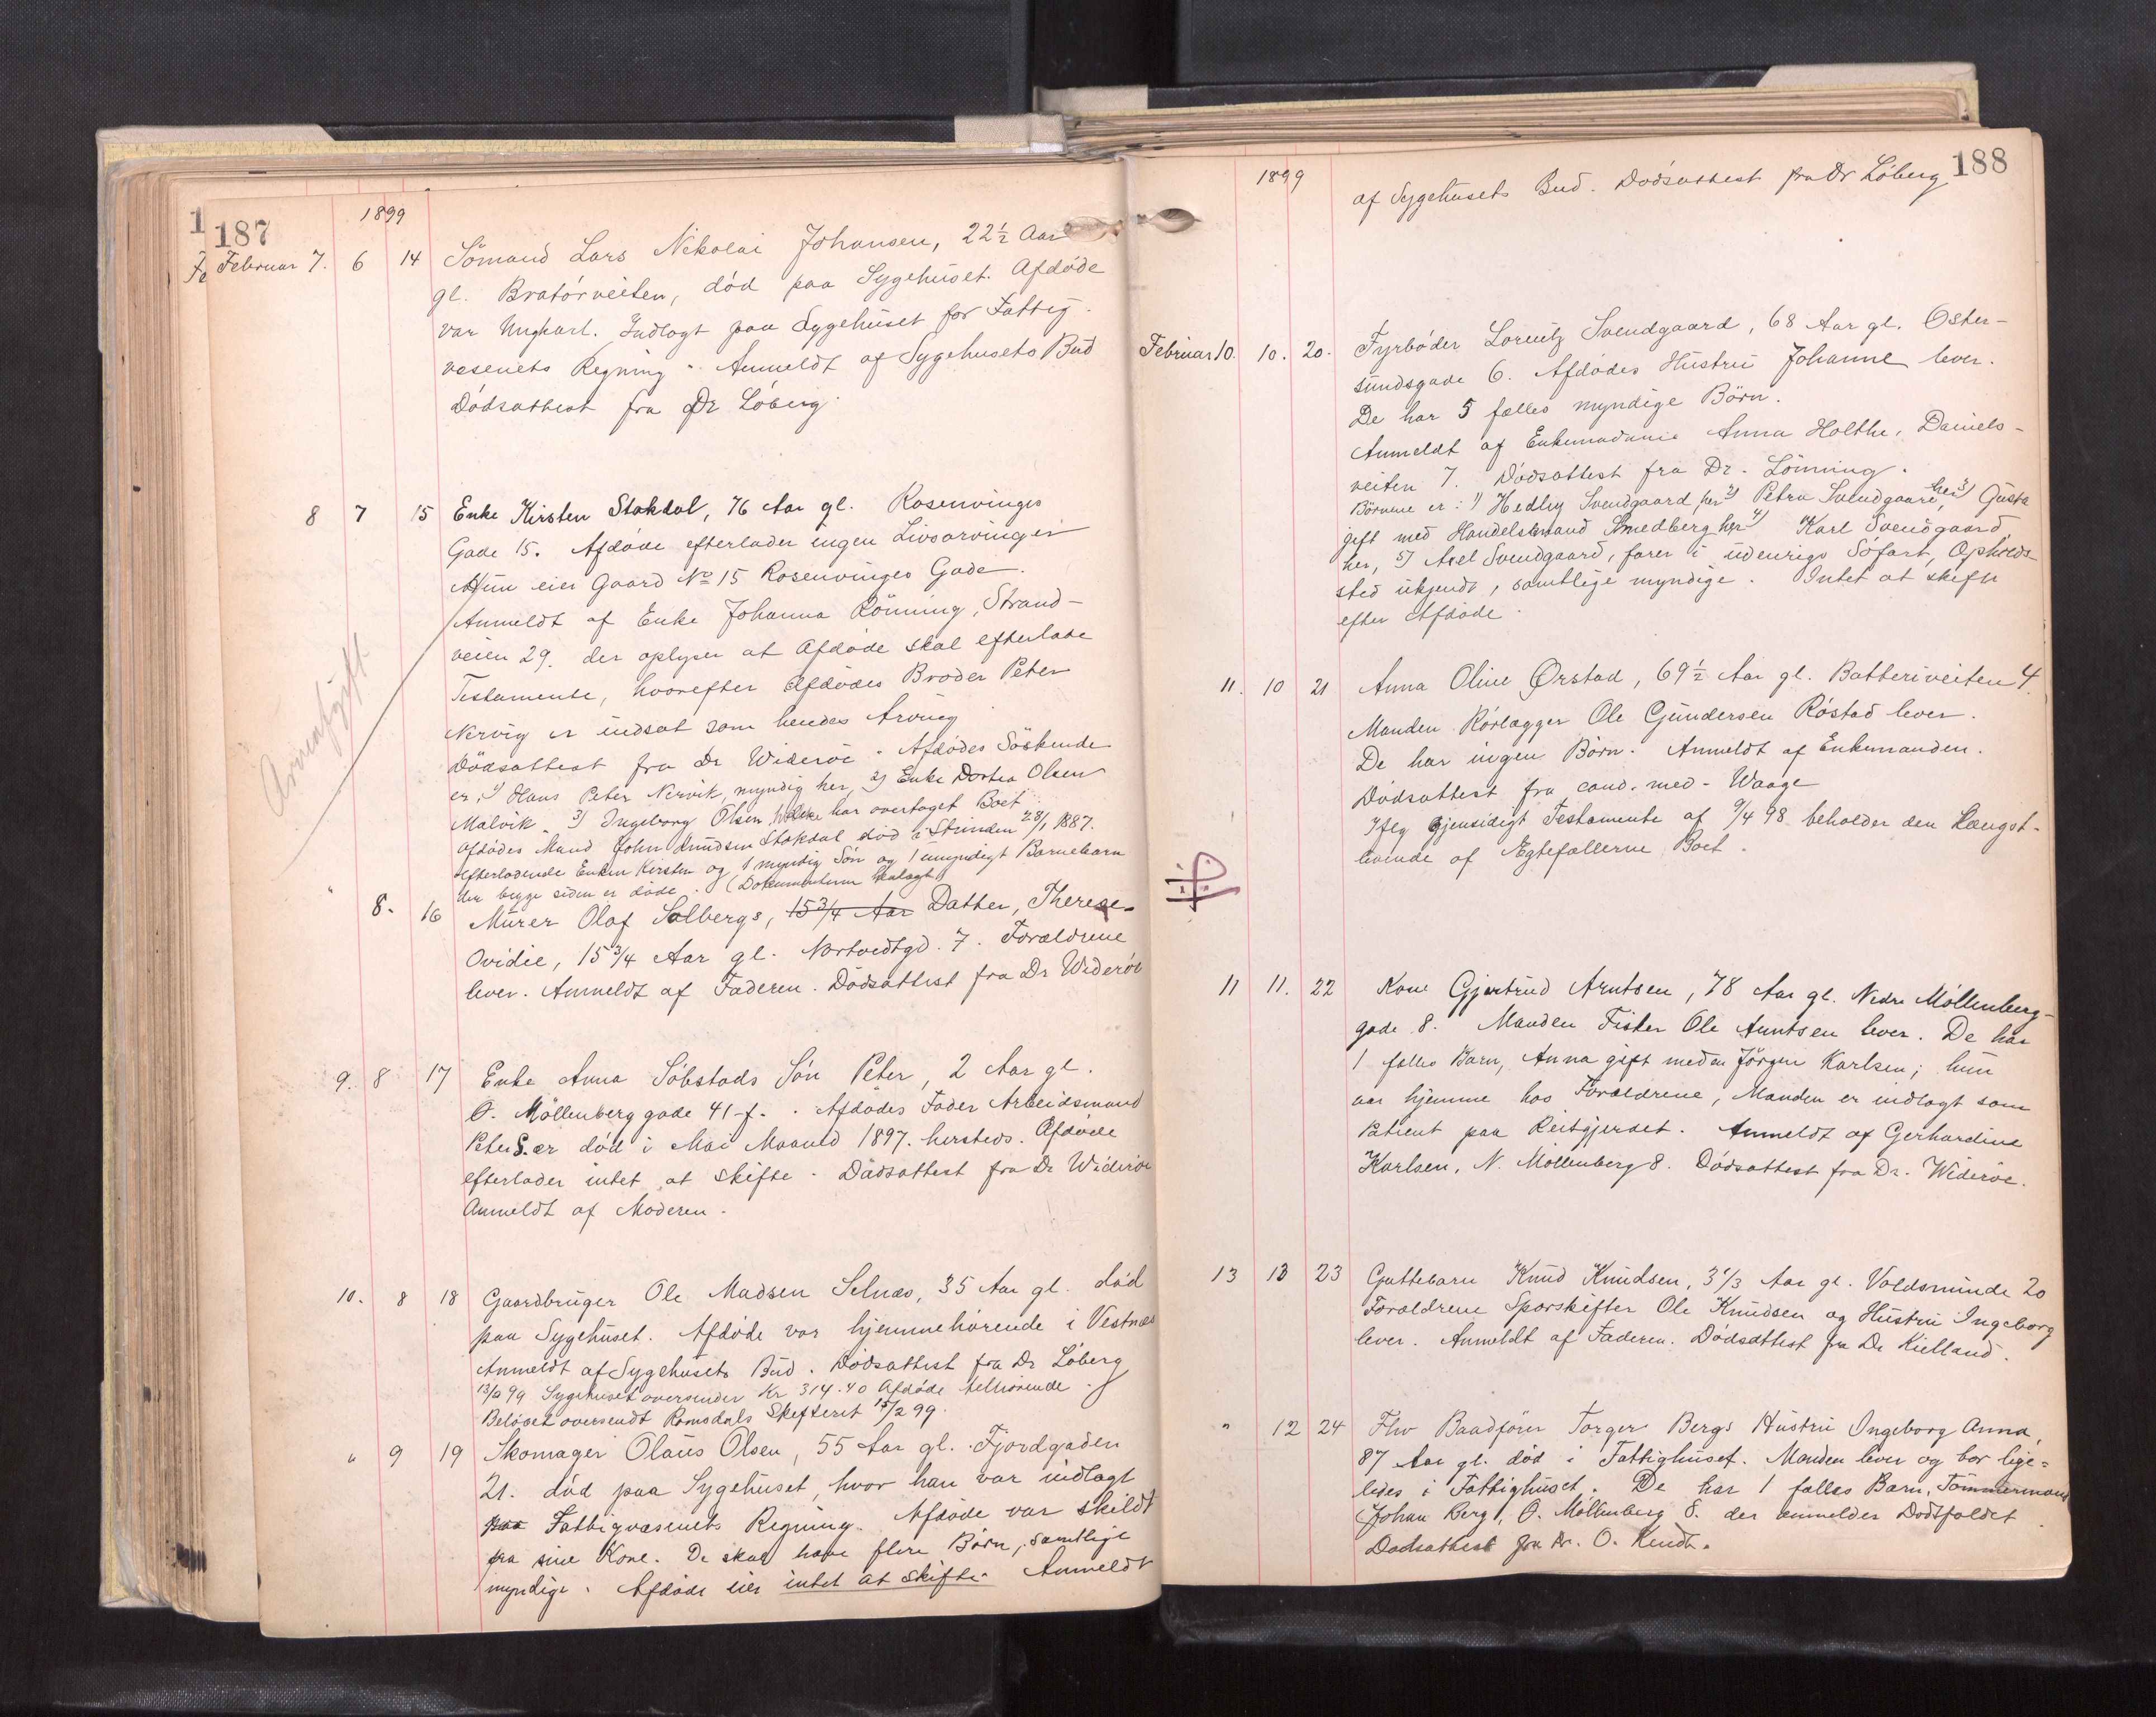 187
1899
Februar 7. 6 14 Sömand Lars Nikolai Johansen, 22½ Aar
gl. Bratörveiten, död paa Sygehuset. Afdöde
var Ungkarl. Indlagt paa Sygehuset for Fattig-
vesenets Regning. Anmeldt af Sygehusets Bud
Dödsattest fra Dr Löberg.
8 7 15 Enke Kirsten Stokdal, 76 Aar gl. Rosenvinges
Gade 15. Afdöde efterlader ingen Livsarvinger
Hun eier Gaard No 15 Rosenvinges Gade.
Anmeldt af Enke Johanna Rönning, Strand-
veien 29. der oplyser at Afdöde skal efterlade
Testamente, hvorefter Afdödes Broder Peter
Nervig er indsat som hendes Arving
Dödsattest fra Dr Wideröe. Afdödes Söskende
er, 1) Hans Peter Nervik, myndig her, 2) Enke Dortea Olsen
Malvik. 3) Ingeborg Olsen, hvilke har overtaget Boet
Afdödes Mand John Knudsen Stokdal död i Strinden 28/1 1887.
efterladende Enken Kirsten og 1 myndig Sön og 1 umyndigt Barnebarn
der begge siden er döde. (Dokumenterne henlagt)
Arveafgift
" 8. 16 Murer Olaf Solbergs, 15¾ Aar Datter, Therese
Ovidie, 15¾ Aar gl. Nortvedtgd. 7. Forældrene
lever. Anmeldt af Faderen. Dödsattest fra Dr Wideröe
9. 8 17 Enke Anna Söbstads Sön Peter, 2 Aar gl.
O. Möllenberggade 41 f. Afdödes Fader Arbeidsmand
Peter S. er död i Mai Maaned 1897. hersteds. Afdöde
efterlader intet at skifte. Dödsattest fra Dr Wideröe
Anmeldt af Moderen.
10. 8 18 Gaardbruger Ole Madsen Selnæs, 35 Aar gl. död
paa Sygehuset. Afdöde var hjemmehörende i Vestnæs
Anmeldt af Sygehusets Bud. Dödsattest fra Dr Löberg
13/2 99 Sygehuset oversender Kr 314.40 Afdöde tilhörende.
Belöbet oversendt Romsdals Skifteret 15/2 99.
" 9 19 Skomager Olaus Olsen, 55 Aar gl. Fjordgaden
21. död paa Sygehuset, hvor han var indlagt
paa Fattigvæsenets Regning. Afdöde var skildt
fra sine Kone. De skal have flere Börn, samtlige
myndige. Afdöde eier intet at skifte. Anmeldt
188
1899
af Sygehusets Bud. Dödsattest fra Dr Löberg
Februar 10. 10. 20. Fyrböder Lorentz Svendgaard, 68 Aar gl. Oster-
sundsgade 6. Afdödes Hustru Johanne lever.
De har 5 fælles myndige Börn.
Anmeldt af Enkemadame Anna Holthe, Daniels-
veiten 7. Dödsattest fra Dr. Lönning.
Börnene er: 1) Hedlig Svendgaard, her 2) Petra Svendgaard, her 3) Gusta
gift med Handelsmand Smedberg her 4) Karl Svendgaard
her, 5) Axel Svendgaard, farer i udenrigs Söfart, Opholds-
sted ukjendt, samtlige myndige. Intet at skifte
efter Afdöde.
11. 10 21 Anna Oline Ørstad, 69½ Aar gl. Batteriveiten 4.
Manden Rörlægger Ole Gundersen Röstad lever.
De har ingen Börn. Anmeldt af Enkemanden.
Dödsattest fra cand. med. Waage
Iflg gjensidigt Testamente af 9/4 98 beholder den Længst-
levende af Ægtefællerne Boet.
11 11. 22 Kone Gjertrud Arntsen, 78 Aar gl. Nedre Möllenberg-
gade 8. Manden Fisker Ole Arntsen lever. De har
1 fælles Barn, Anna gift med Jörgen Karlsen; hun
var hjemme hos Forældrene, Manden er indlagt som
Patient paa Reitgjerdet. Anmeldt af Gerhardine
Karlsen, N. Möllenberg 8. Dödsattest fra Dr. Wideröe.
13 13 23 Guttebarn Knud Knudsen, 3⅓ Aar gl. Voldsminde 20
Forældrene Sporskifter Ole Knudsen og Hustru Ingeborg
lever. Anmeldt af Faderen. Dödsattest fra Dr Kielland.
" 12 24 Fhv Baadförer Torger Bergs Hustru Ingeborg Anna,
87 Aar gl. död i Fattighuset. Manden lever og bor lige=
ledes i Fattighuset. De har 1 fælles Barn, Tömmermand
Johan Berg, O. Möllenberg 8. der anmelder Dödsfaldet.
Dödsattest fra Dr. O. Kindt.